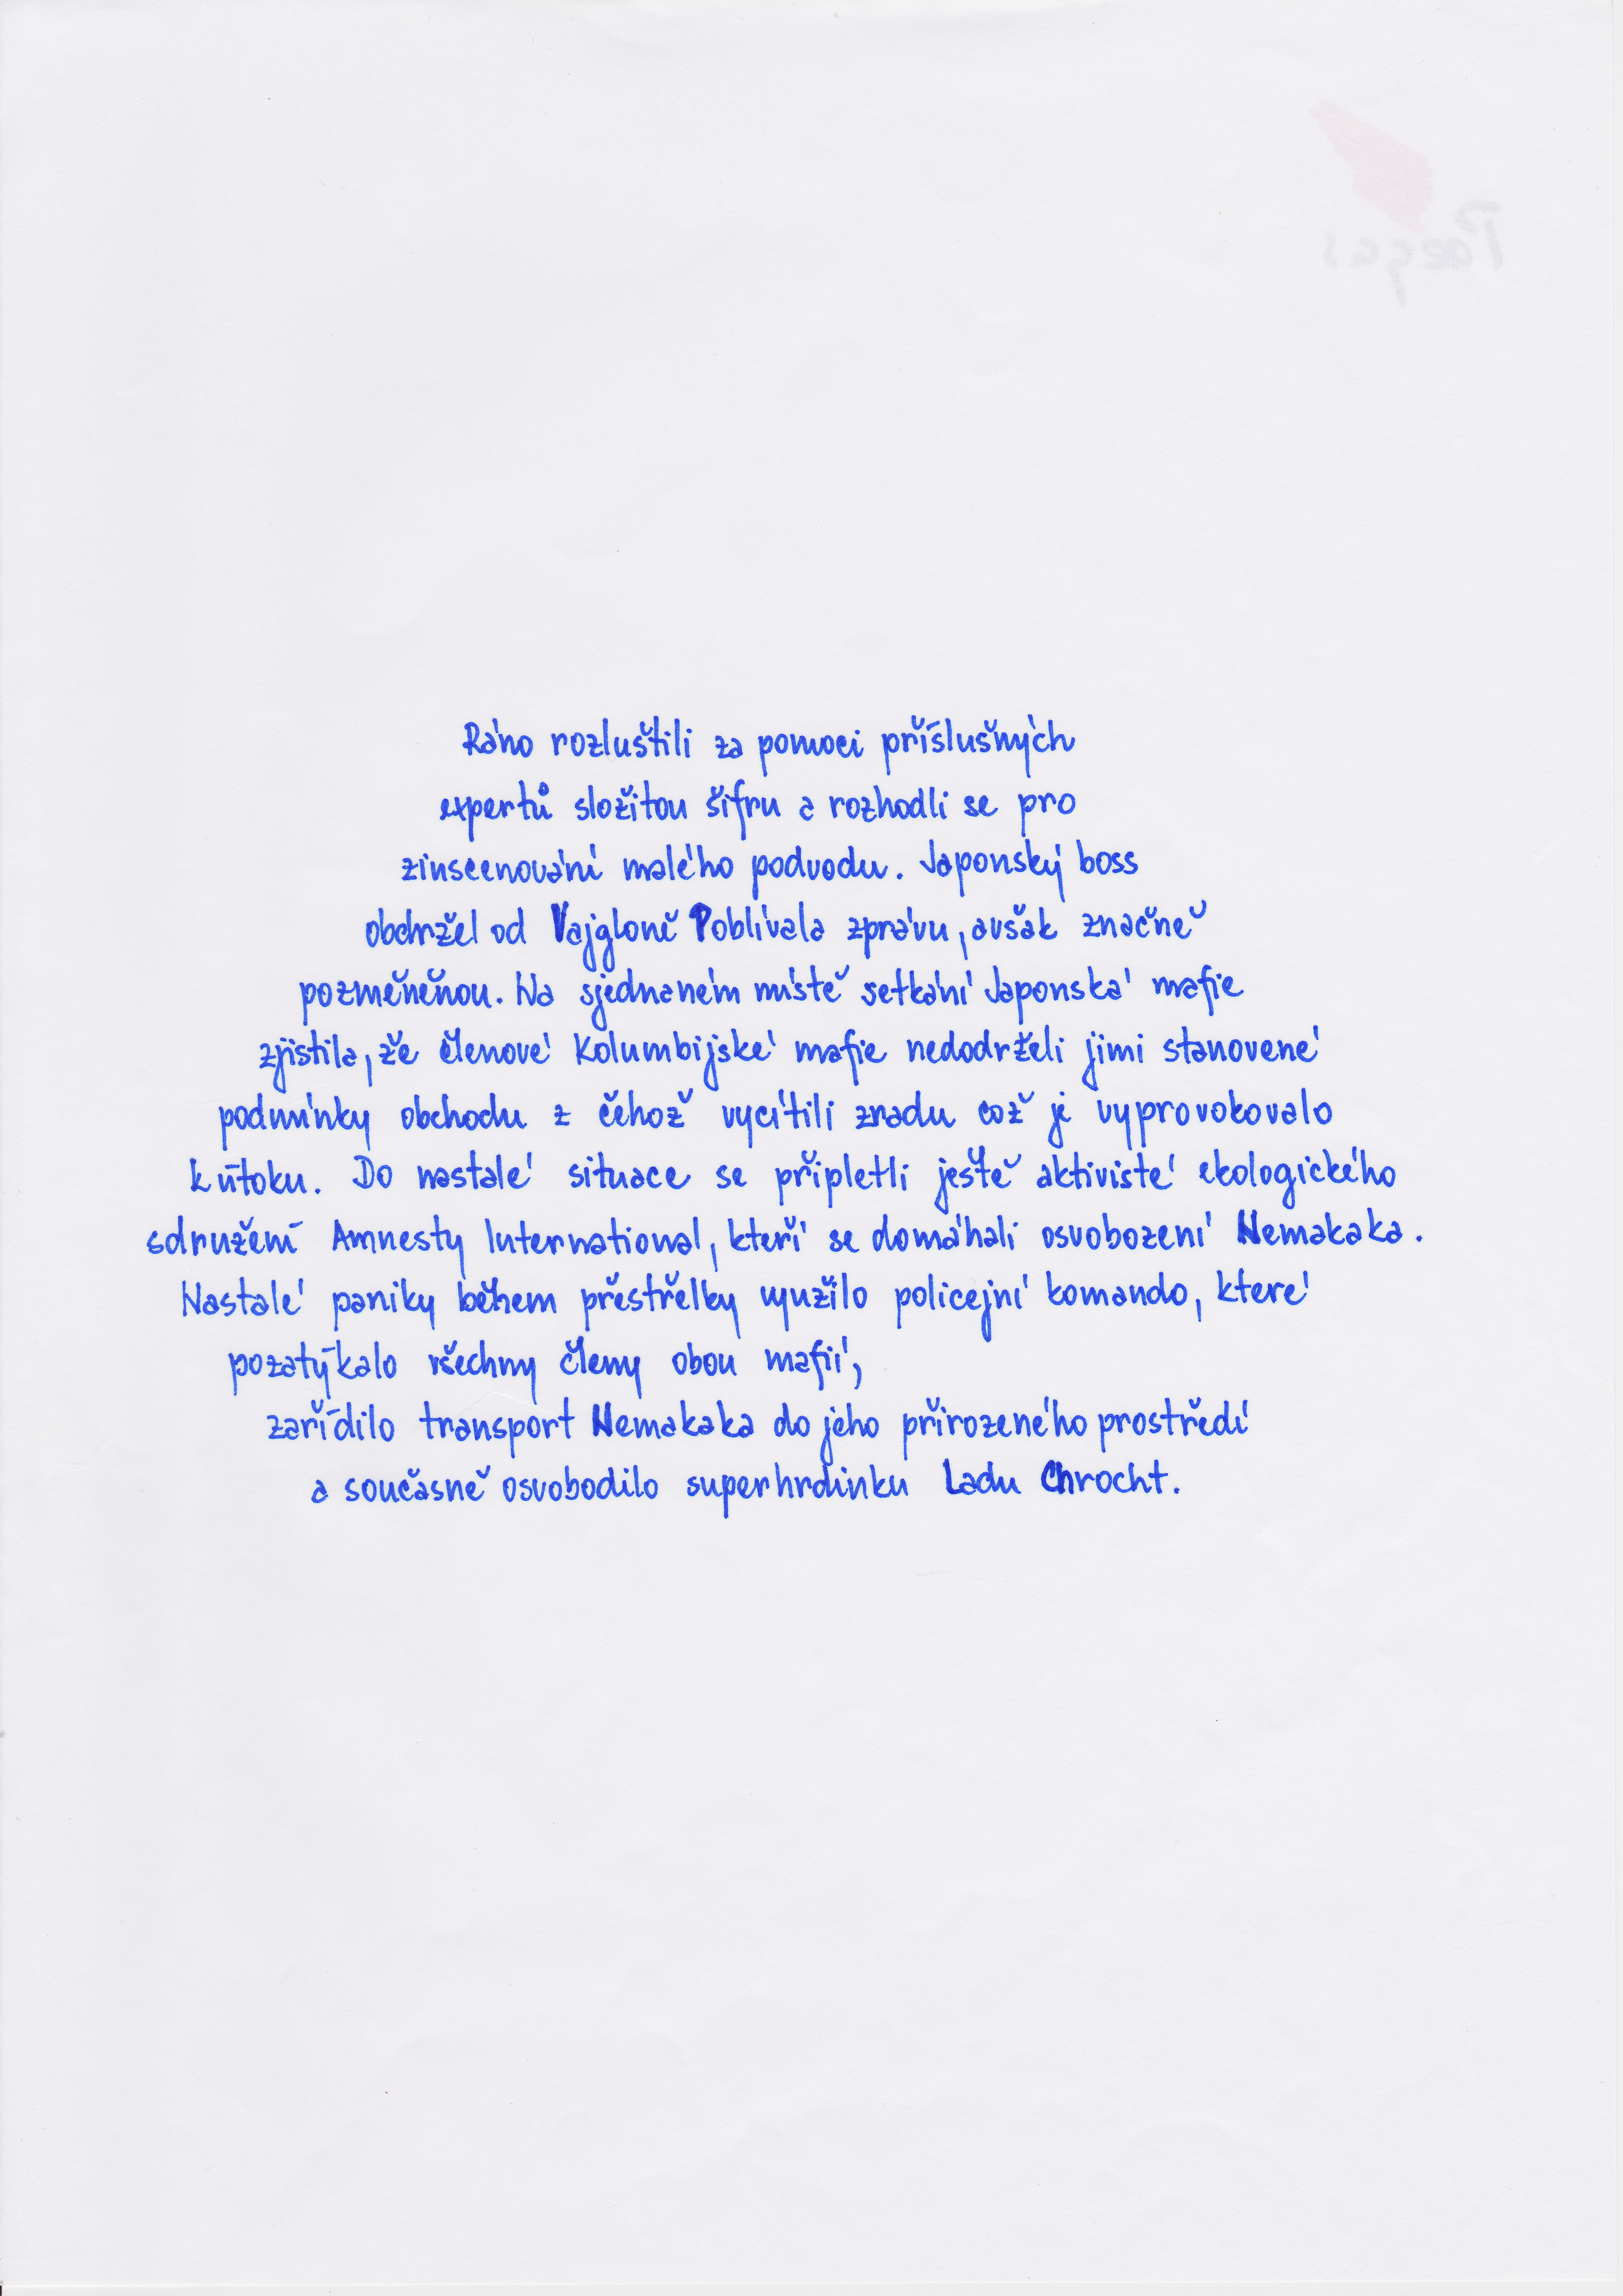 Ráno rozluštili za pomoci příslušných
expertů složitou šifru a rozhodli se pro
zinscenování malého podvodu. Japonský boss
obdržel od Vajgloně Poblívala zprávu, avšak značně
pozměněnou. Na sjednaném místě setkání Japonská mafie
zjistila, že členové Kolumbijské mafie nedodrželi jimi stanovené
podmínky obchodu z čehož vycítili zradu což je vyprovokovalo
k útoku. Do nastalé situace se připletli ještě aktivisté ekologického
sdružení Amnesty International, kteří se domáhali osvobození Nemakaka.
Nastalé paniky během přestřelky využilo policejní komando, které
pozatýkalo všechny členy obou mafií,
zařídilo transport Nemakaka do jeho přirozeného prostředí
a současně osvobodilo superhrdinku Ladu Chrocht.